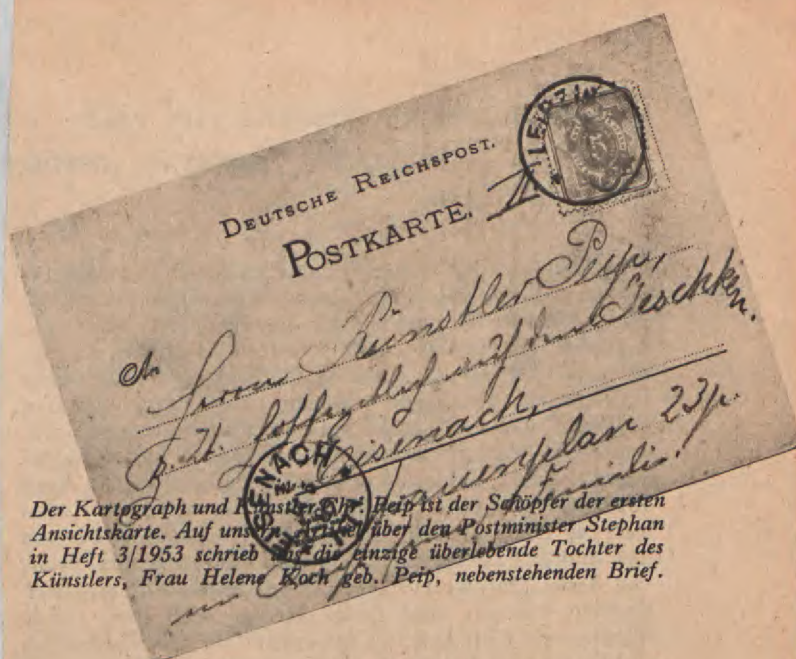 DEUTSCHE REICHSPOST.
POSTKARTE.
LEIPZIG
An
Herrn Künstler Peip,
z. Zt. hoffentlich auf dem Jeschken.
Eisenach,
Frauenplan 23 p.
EISENACH
Der Kartograph und Künstler Chr. Peip ist der Schöpfer der ersten
Ansichtskarte. Auf unsern Artikel über den Postminister Stephan
in Heft 3/1953 schrieb uns die einzige überlebende Tochter des
Künstlers, Frau Helene Koch geb. Peip, nebenstehenden Brief.